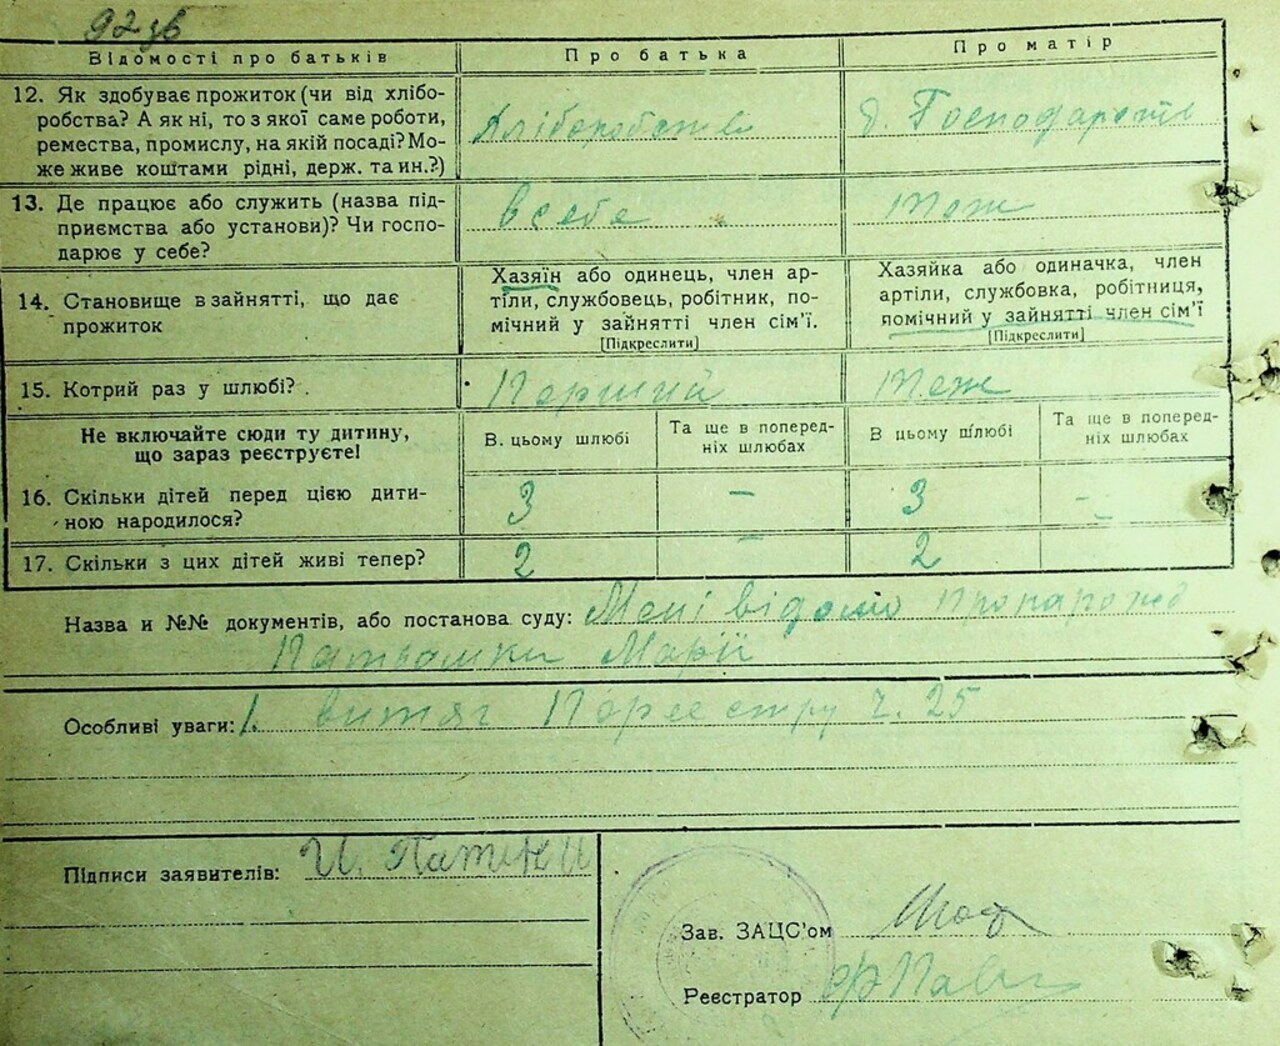 92 зв
Відомості про батьків
Про батька
Про матір
12. Як здобуває прожиток (чи від хлібо-
робства? А як ні, то з якої саме роботи,
ремества, промислу, на якій посаді? Мо-
же живе коштами рідні, держ. та ин.?)
Хліборобство
д. Господарств
13. Де працює або служить (назва під-
приємства або установи)? Чи госпо-
дарює у себе?
в себе
тож
14. Становище в зайнятті, що дає
прожиток
Хазяїн або одинець, член ар-
тіли, службовець, робітник, по-
мічний у зайнятті член сім'ї.
[Підкреслити]
Хазяйка або одиначка, член
артіли, службовка, робітниця,
помічний у зайнятті член сім'ї
[Підкреслити]
15. Котрий раз у шлюбі?
Перший
теж
Не включайте сюди ту дитину,
що зараз реєструєте!
В. цьому шлюбі
Та ще в поперед-
ніх шлюбах
В цьому шлюбі
Та ще в поперед-
ніх шлюбах
16. Скільки дітей перед цією дити-
ною народилося?
3
–
3
–
17. Скільки з цих дітей живі тепер?
2
–
2
–
Назва и №№ документів, або постанова суду: Мені відомо про нарожд
Марії
Особливі уваги: 1. витяг По реєстру ч. 25
Підписи заявителів: И.
Зав. ЗАЦС'ом
Реєстратор